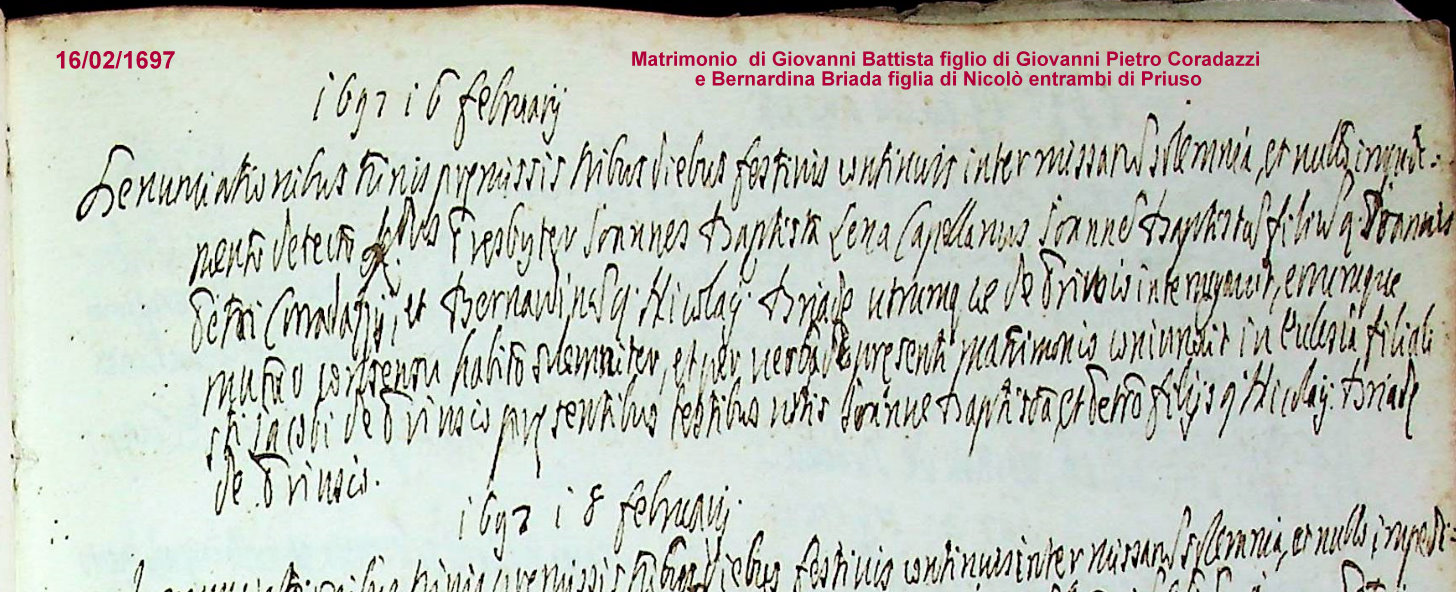 16/02/1697
Matrimonio di Giovanni Battista figlio di Giovanni Pietro Coradazzi
e Bernardina Briada figlia di Nicolò entrambi di Priuso
1697 16 februarij
Denuntiationibus trinis premissis tribus diebus festivis continuis inter missarũ solemnia, et nullo impedi=
mento detecto Presbyter Joannes Baptista Lena Capellanus Joannẽ Baptistã filiũ q Joannis
Petri Coradazzij, et Bernardinã q. Nicolaij Briade utrumque de Priusio interrogavit, eorumque
mutuo consensu habito solemniter, et per verba de presenti matrimonio coniunxit in Ecclesia filiali
sti Jacobi de Priusio presentibus testibus notis Joanne Baptista, et Petro filijs q Nicolaij Briade
de Priusio.
1697 18 februarij
premissis tribus diebus festivis continuis inter missarũ solemnia, et nullo impedi=